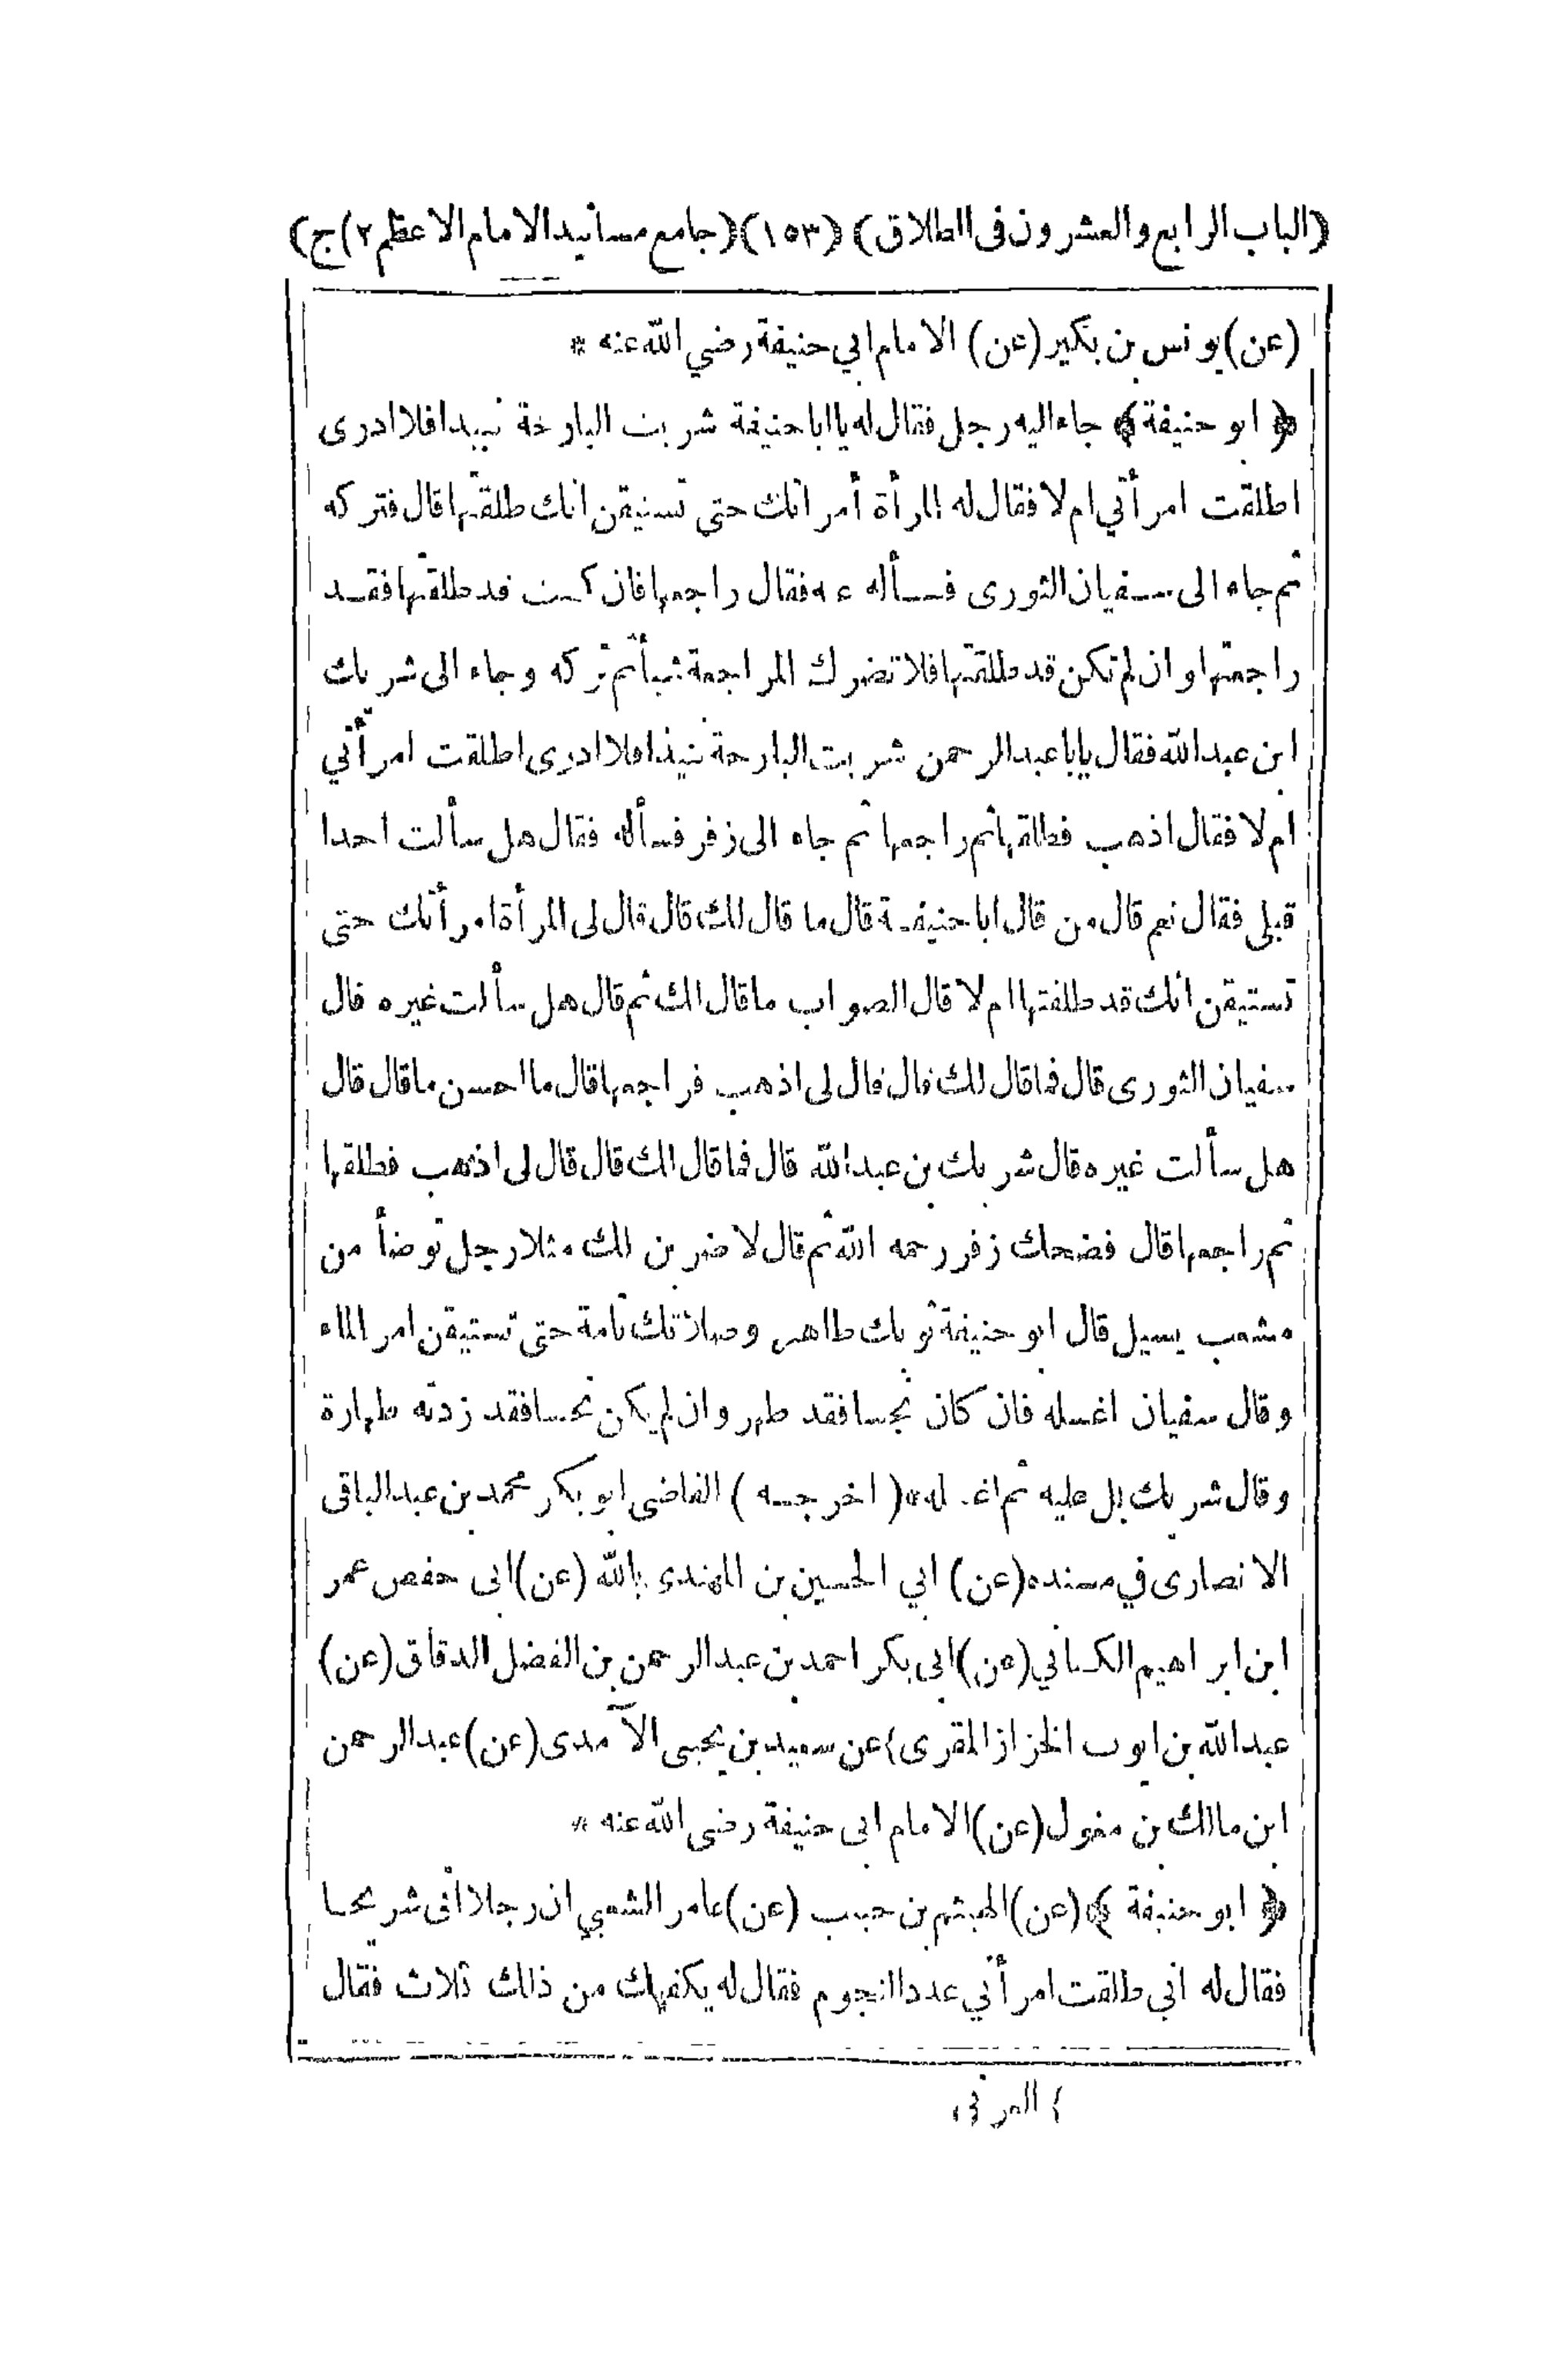 (الباب الرابع والعشرون فى الطلاق) (١٥٣) (جامع مسانيد الامام الاعظم ٢) ج)
(عن) يونس بن بكير (عن) الامام ابي حنيفة رضي الله عنه *
﴿ ابو حنيفة ﴾ جاء اليه رجل فقال له يا ابا حنيفة شربت البارحة نبيذا فلا ادرى
اطلقت امرأتي ام لا فقال له المرأة أمرأتك حتى تستيقن انك طلقتها قال فتركه
ثم جاء الى سفيان الثورى فسأله عنه فقال راجعها فان كنت قد طلقتها فقد
راجعتها وان لم تكن قد طلقتها فلا تضرك المراجعة شيأ ثم تركه وجاء الى شريك
ابن عبد الله فقال يابا عبد الرحمن شربت البارحة نبيذا فلا ادرى اطلقت امرأتي
ام لا فقال اذهب فطلقها ثم راجعها ثم جاء الى زفر فسأله فقال هل سألت احدا
قبلى فقال نعم قال من قال ابا حنيفة قال ما قال لك قال قال لى المرأة امرأتك حتى
تستيقن انك قد طلقتها ام لا قال الصواب ما قال لك ثم قال هل سألت غيره قال
سفيان الثورى قال فما قال لك قال قال لى اذهب فراجعها قال ما احسن ما قال قال
هل سألت غيره قال شريك بن عبد الله قال فما قال لك قال قال لى اذهب فطلقها
ثم راجعها قال فضحك زفر رحمه الله ثم قال لاضربن لك مثلا رجل توضأ من
مشعب يسيل قال ابو حنيفة ثوبك طاهر وصلاتك تامة حتى تستيقن امر الماء
وقال سفيان اغسله فان كان نجسا فقد طهر وان لم يكن نجسا فقد زدته طهارة
وقال شريك بل عليه ثم اغسله * (اخرجه) القاضى ابو بكر محمد بن عبد الباقى
الانصارى في مسنده (عن) ابي الحسين بن المهتدى بالله (عن) ابى حفص عمر
ابن ابراهيم الكتاني (عن) ابى بكر احمد بن عبد الرحمن بن الفضل الدقاق (عن)
عبد الله بن ايوب الخزاز المقرى (عن سعيد بن يحيى الآمدى (عن) عبد الرحمن
ابن مالك بن مغول (عن) الامام ابى حنيفة رضى الله عنه *
﴿ ابو حنيفة ﴾ (عن) الهيثم بن حبيب (عن) عامر الشعبي ان رجلا اتى شريحا
فقال له اني طلقت امرأتي عدد النجوم فقال له يكفيك من ذلك ثلاث فقال